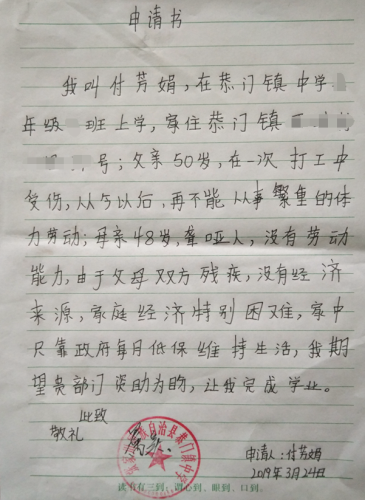 申请书
我叫付芳娟，在恭门镇中学
年级 班上学，家住恭门镇
号；父亲50岁，在一次打工中
受伤，从今以后，再不能从事繁重的体
力劳动；母亲48岁，聋哑人，没有劳动
能力，由于父母双方残疾，没有经济
来源，家庭经济特别困难，家中
只靠政府每月低保维持生活，我期
望贵部门资助为盼，让我完成学业。
此致
敬礼
自治县恭门镇中学
申请人：付芳娟
2019年3月24日
读书有三到：心到、眼到、口到。